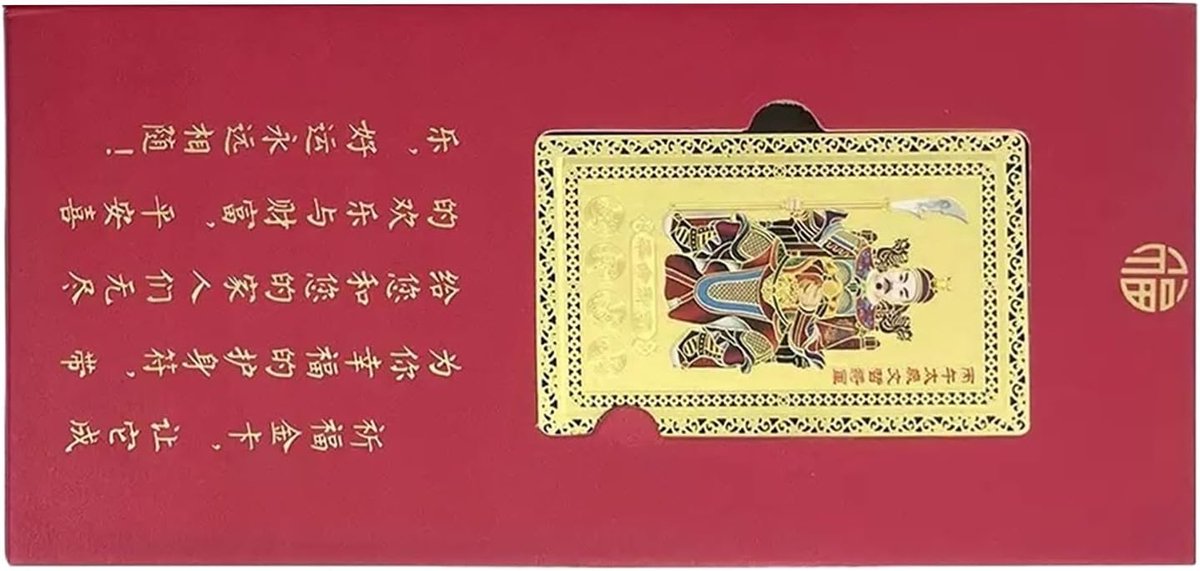 福
丙午太歲文哲將軍
祈福金卡，让它成
为你幸福的护身符，带
给您和您的家人们无尽
的欢乐与财富，平安喜
乐，好运永远相随！